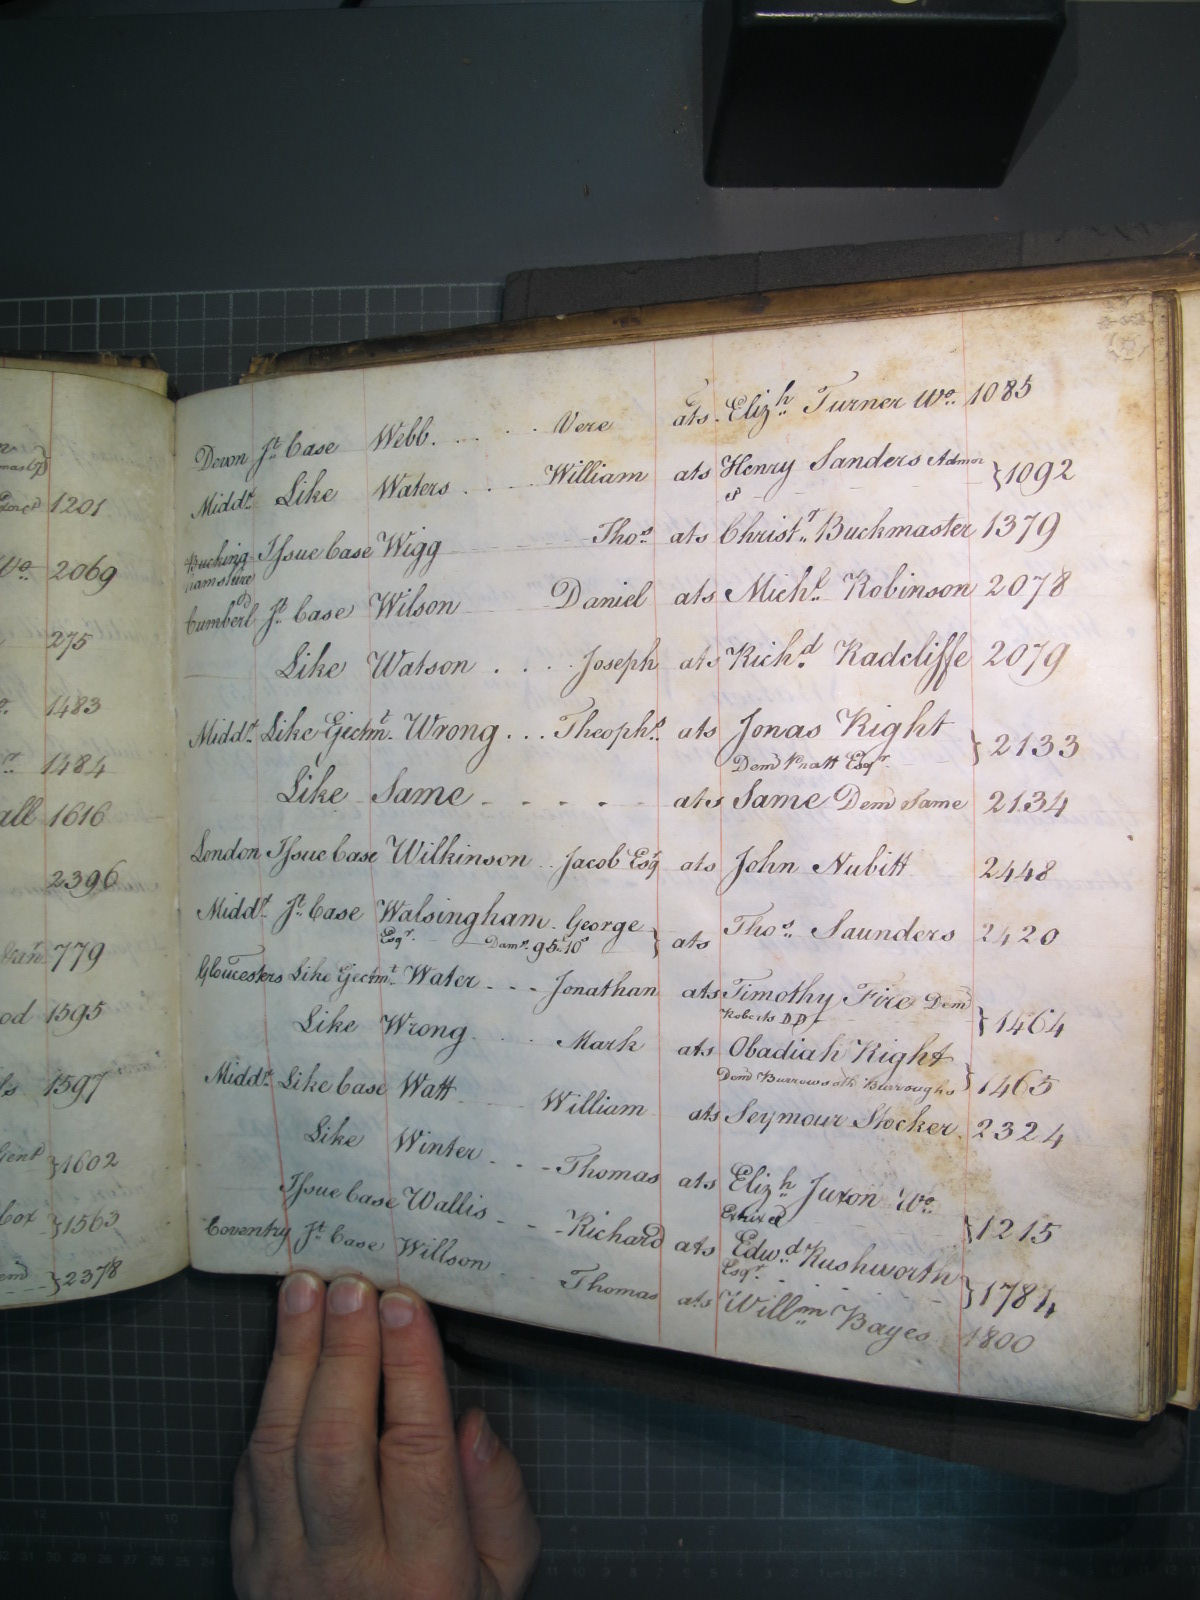 1201
2069
275
1483
1484
all 1616
2396
779
od 1595
ls 1597
Gent }1602
cox }1563
}2378
Devon Jt. Case Webb. . . . . Vere ats. Elizh.. Turner Wo.. 1085
Middx. Like Waters . . . William ats Henry Sanders Admor }1092
Buckinghamshire Issue Case Wigg Thos. ats Christr.. Buckmaster 1379
Cumberld Jt. Case Wilson Daniel ats Michl.. Robinson 2078
Like Watson . . . . Joseph ats Richd.. Radcliffe 2079
Middx. Like Ejectmt. Wrong . . . Theophs. ats Jonas Right }2133
Demd Pratt Esqr.
Like Same - - - - - ats Same Demd Same 2134
London Issue Case Wilkinson . . Jacob Esqr ats John Nubitt 2448
Middx. Jt. Case Walsingham. George } ats Thos.. Saunders 2420
Esqr. Dams. 95..10s
Gloucesters Like Ejectmt. Water - - - Jonathan ats Timothy Fire Demd }1464
Roberts DD
Like Wrong . . . Mark ats Obadiah Right }1465
Demd Burrows als Burroughs
Middx. Like Case Watt William ats Seymour Stocker. 2324
Like Winter - - - Thomas ats Elizh.. Juxon Wo.. }1215
Issue Case Wallis - - - Richard ats Edwd.. Rushworth }1784
Esqr.
Coventry Jt. Case Willson Thomas ats Willm.. Bayes 1800